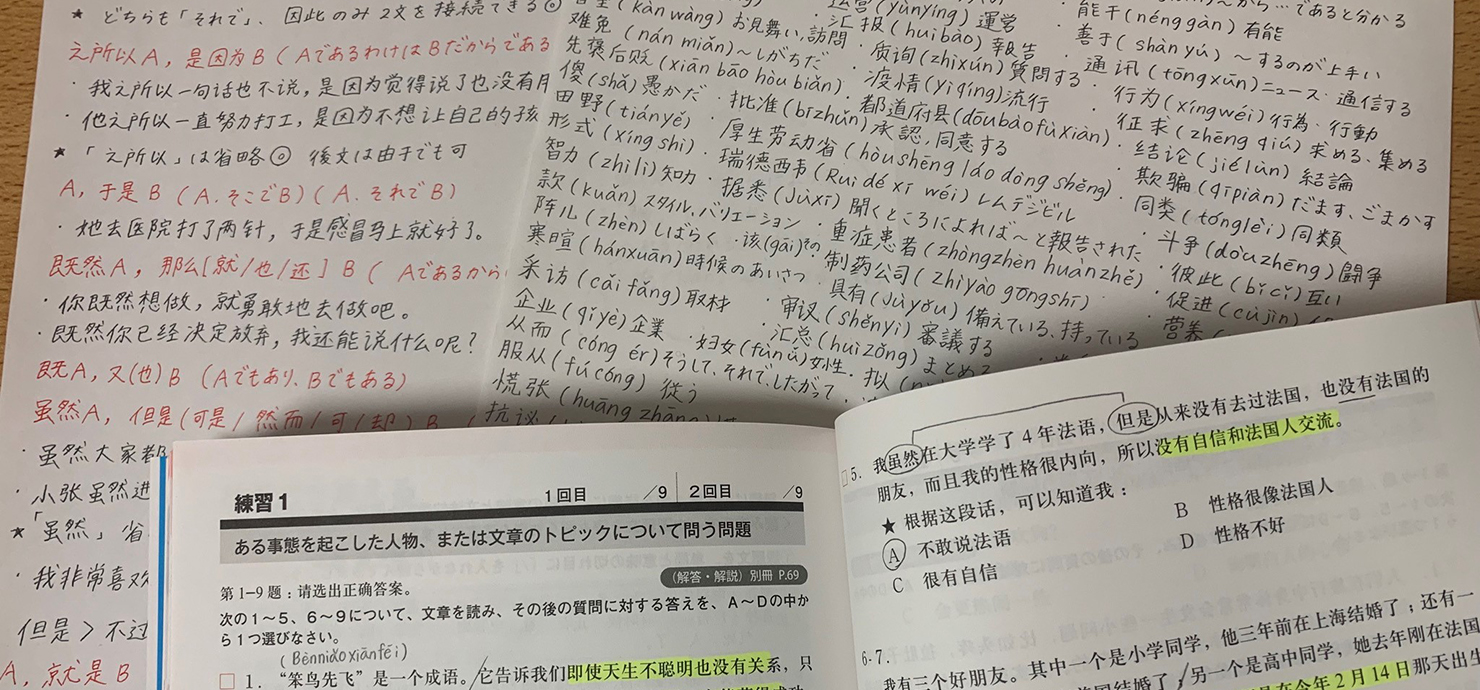 ★ どちらも「それで」、因此のみ2文を接続できる◎
之所以A，是因为B（AであるわけはBだからである
・我之所以一句话也不说，是因为觉得说了也没有用
・他之所以一直努力打工，是因为不想让自己的孩
★「之所以」は省略◎ 後文は由于でも可
A，于是B（A.そこでB）（A.それでB）
・她去医院打了两针，于是感冒马上就好了。
既然A，那么[就/也/还] B（Aであるから
・你既然想做，就勇敢地去做吧。
・既然你已经决定放弃，我还能说什么呢？
既A，又(也)B（Aでもあり、Bでもある）
虽然A，但是(可是/然而/可/却) B
・虽然大家都
・小张虽然进
★「虽然」省
・我非常喜欢
但是＞不过
A，就是B
(kàn wàng) お見舞い,訪問
难免 (nán miǎn) 〜しがちだ
先褒后贬 (xiān bāo hòu biǎn)
傻(shǎ) 愚かだ
田野(tiányě)
形式(xíng shì)
智力(zhìlì)知力
款(kuǎn) スタイル,バリエーション
阵儿(zhèn)しばらく
寒暄(hánxuān)時候のあいさつ
采访(cǎi fǎng)取材
企业(qǐyè)企業
从而(cóng ér)そうして、それで,したがって
服从(fú cóng) 従う
慌张(huāng zhāng)
(yùnyíng) 運営
・汇报(huìbào) 報告
・质询(zhìxún)質問する
・疫情(yìqíng)流行
・批准(pīzhǔn)承認,同意する
・都道府县(dōudàofǔxiàn)
・厚生劳动省(hòushēng láo dòng shěng)
・瑞德西韦(Ruì dé xī wéi)レムデシビル
・据悉(Jùxī)聞くところによれば〜と報告された
・该(gāi)その
・重症患者(zhòngzhèn huànzhě)
・制药公司(zhìyào gōngsī)
・具有(Jùyǒu)備えている、持っている
・审议(shěnyì)審議する
・妇女(fùnǚ)女性
・汇总(huìzǒng)まとめる
・拟
〜から…であると分かる
・能干(nénggàn)有能
・善于(shàn yú) 〜するのが上手い
・通讯(tōngxùn)ニュース・通信する
・行为(xíngwéi)行為・行動
・征求(zhēng qiú)求める、集める
・结论(jiélùn)結論
・欺骗(qīpiàn)だます、ごまかす
・同类(tónglèi)同類
・斗争(dòuzhēng)闘争
・彼此(bǐcǐ)互い
・促进(cùjìn)
・营养
練習1
1回目 /9 2回目 /9
ある事態を起こした人物、または文章のトピックについて問う問題
（解答・解説）別冊 P.69
第1−9题：请选出正确答案。
次の1〜5、6〜9について、文章を読み、その後の質問に対する答えを、A〜Dの中か
ら1つ選びなさい。
(Bènniǎoxiānfēi)
□ 1. “笨鸟先飞”是一个成语。它告诉我们即使天生不聪明也没有关系，只
□5. 我虽然在大学学了4年法语，但是从来没有去过法国，也没有法国的
朋友，而且我的性格很内向，所以没有自信和法国人交流。
★ 根据这段话，可以知道我：
A 不敢说法语
B 性格很像法国人
C 很有自信
D 性格不好
6-7.
我有三个好朋友。其中一个是小学同学，他三年前在上海结婚了；还有一
结婚了，另一个是高中同学，她去年刚在法国
在今年2月14日那天出生